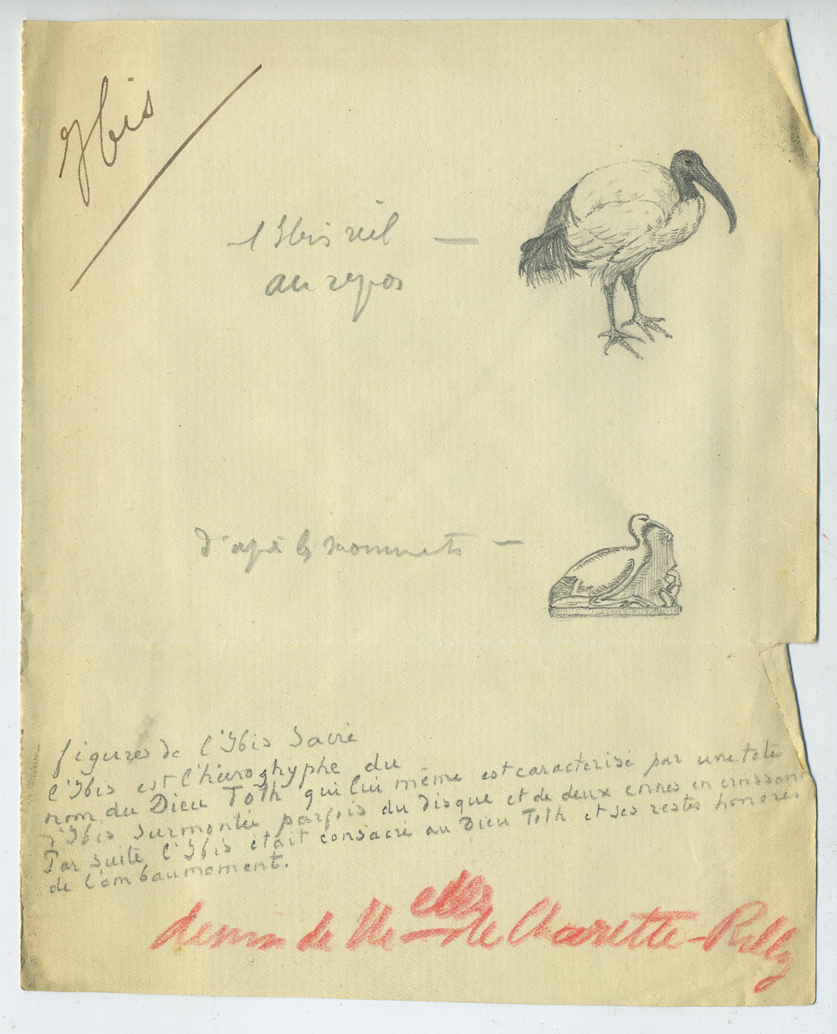 Ibis
l'Ibis réel —
au repos
d'après les monuments —
figures de l'Ibis Sacré
l'Ibis est l'hiéroglyphe du
nom du Dieu Toth qui lui même est caracterisé par une tête
d'Ibis surmontée parfois du disque et de deux cornes en croissant
Par suite l'Ibis était consacré au Dieu Toth et ses restes honorés
de l'embaumement.
dessin de de Charette-Rilly